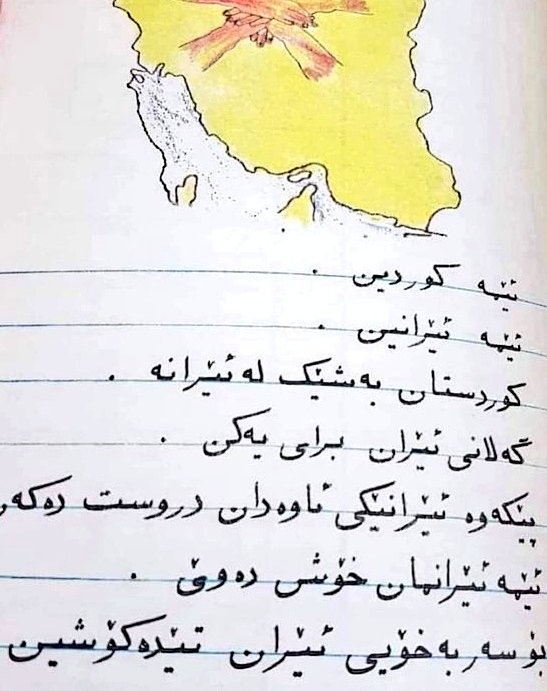 ئێمه کوردین .
ئێمه ئێرانین .
کوردستان به‌شێک له ئێرانه .
گه‌لانی ئێران برای یه‌کن .
پێکه‌وه ئێرانێکی ئاوه‌دان دروست ده‌که‌ن
ئێمه ئێرانمان خۆش ده‌وێ .
بۆ سه‌ربه‌خۆیی ئێران تێده‌کۆشین